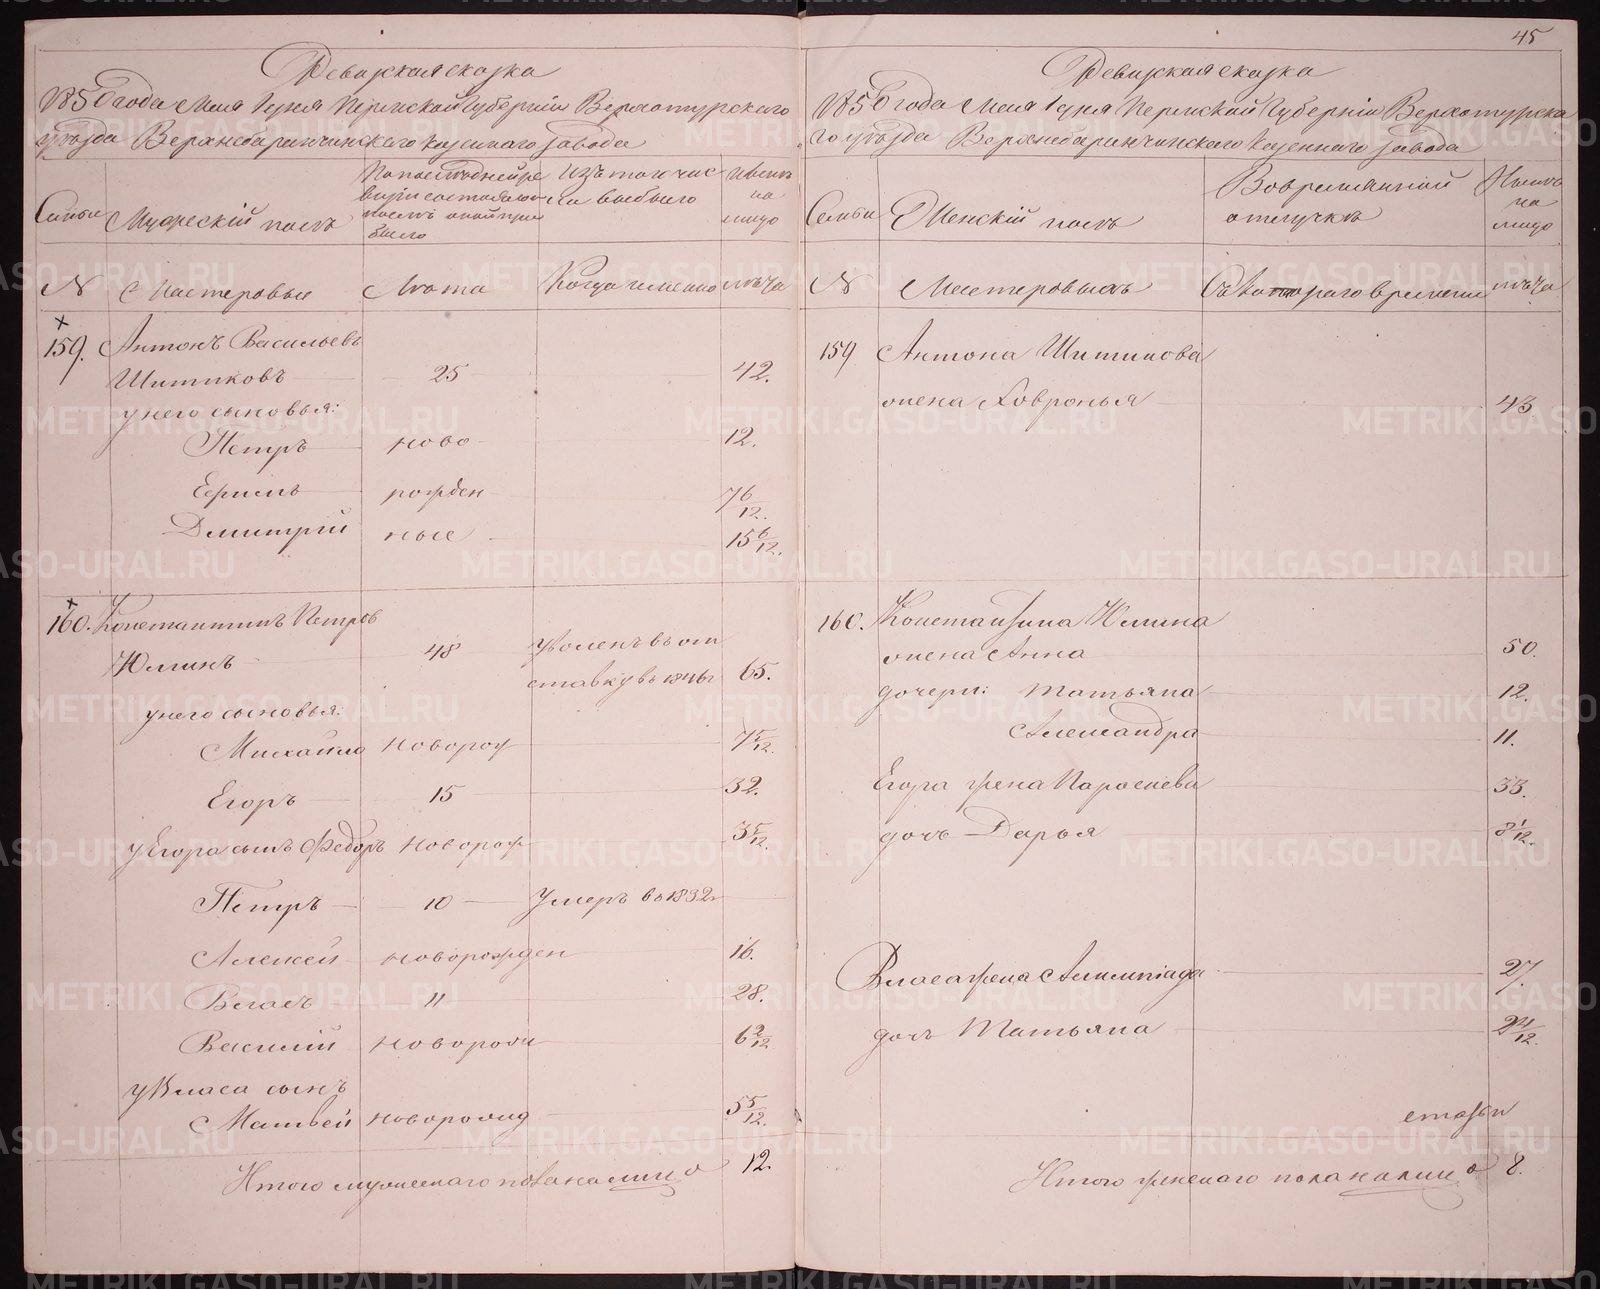 45
Ревизская сказка
1850 года Маiя 1 дня Пермской Губернiи Верхотурского
уѣзда Верхнебаранчинского казеннаго завода
Семьи
Мужескiй полъ
По последней ре
визiи состояло и
послѣ оной при
было
Изъ того чис
ла выбыло
Нынѣ
на
лицо
№
Мастеровые
Лѣта
Когда именно
лѣта
159.
Антонъ Васильевъ
Шитиковъ
25
42.
у него сыновья:
Петръ
ново
12.
Ефимъ
рожден
7 6/12.
Дмитрiй
ные
15 6/12.
160.
Константинъ Петров
Юлинъ
48
уволенъ въ от
ставку въ 1846 г
65.
у него сыновья:
Михайло
новорож
7 5/12.
Егоръ
15
32.
у Егора сынъ Федоръ
новорож
3 5/12.
Петръ
10
Умеръ въ 1832 г
Алексей
новорожден
16.
Власъ
11
28.
Василiй
новорож
6 2/12
у Власа сынъ
Матвей
новорожд
5 5/12.
Итого мужескаго пола на лицо
12.
Ревизская сказка
1850 года Маiя 1 дня Пермской Губернiи Верхотурска
го уѣзда Верхнебаранчинского казеннаго завода
Семьи
Женскiй полъ
Во временной
отлучкѣ
Нынѣ
на
лицо
№
Мастеровыхъ
Съ котораго времени
лѣта
159
Антона Шитикова
жена Хавронья
43.
160.
Константина Юлина
жена Анна
50.
дочери: Татьяна
12.
Александра
11.
Егора жена Парасковья
33.
дочь Дарья
8 1/12.
Власа жена Алимпiада
27.
дочь Татьяна
2 4/12.
Итого женскаго пола на лицо
8.